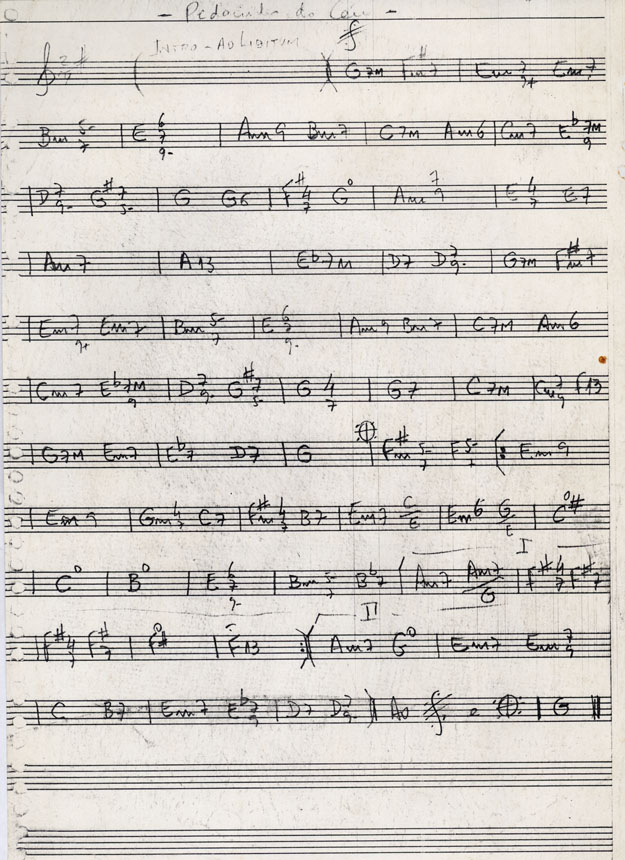 - Pedacinho do Céu -
INTRO - AD LIBITUM
G7M F#m7 | Em7 9+ Em7
Bm7 5- | E 6 7 9- | Am9 Bm7 | C7M Am6 | Cm7 Eb7M 9
D7 9- G#7 5- | G G6 | F#4 7 G° | Am7 9 | E4 7 E7
Am7 | A13 | Eb7M | D7 D7 9- | G7M F#m7
Em7 9+ Em7 | Bm7 5- | E 6 7 9- | Am9 Bm7 | C7M Am6
Cm7 Eb7M 9 | D7 9- G#7 5- | G4 7 | G7 | C7M | Cm7 9 F13
G7M Em7 | Eb7 D7 | G | F#m7 5- F5- + | Em9
Em9 | Gm4 7 C7 | F#m4 7 B7 | Em7 C/E | Em6 G/E | C#°
I
C° | B° | E 6 7 9- | Bm7 5- Bb7 | Am7 Am7/G | F#4 7 F#7
II
F#4 7 F#7 | F#° | F13 | Am7 G° | Em7 Em7 9
C B7 | Em7 Eb7 9 | D7 D7 9- | Ao e | G